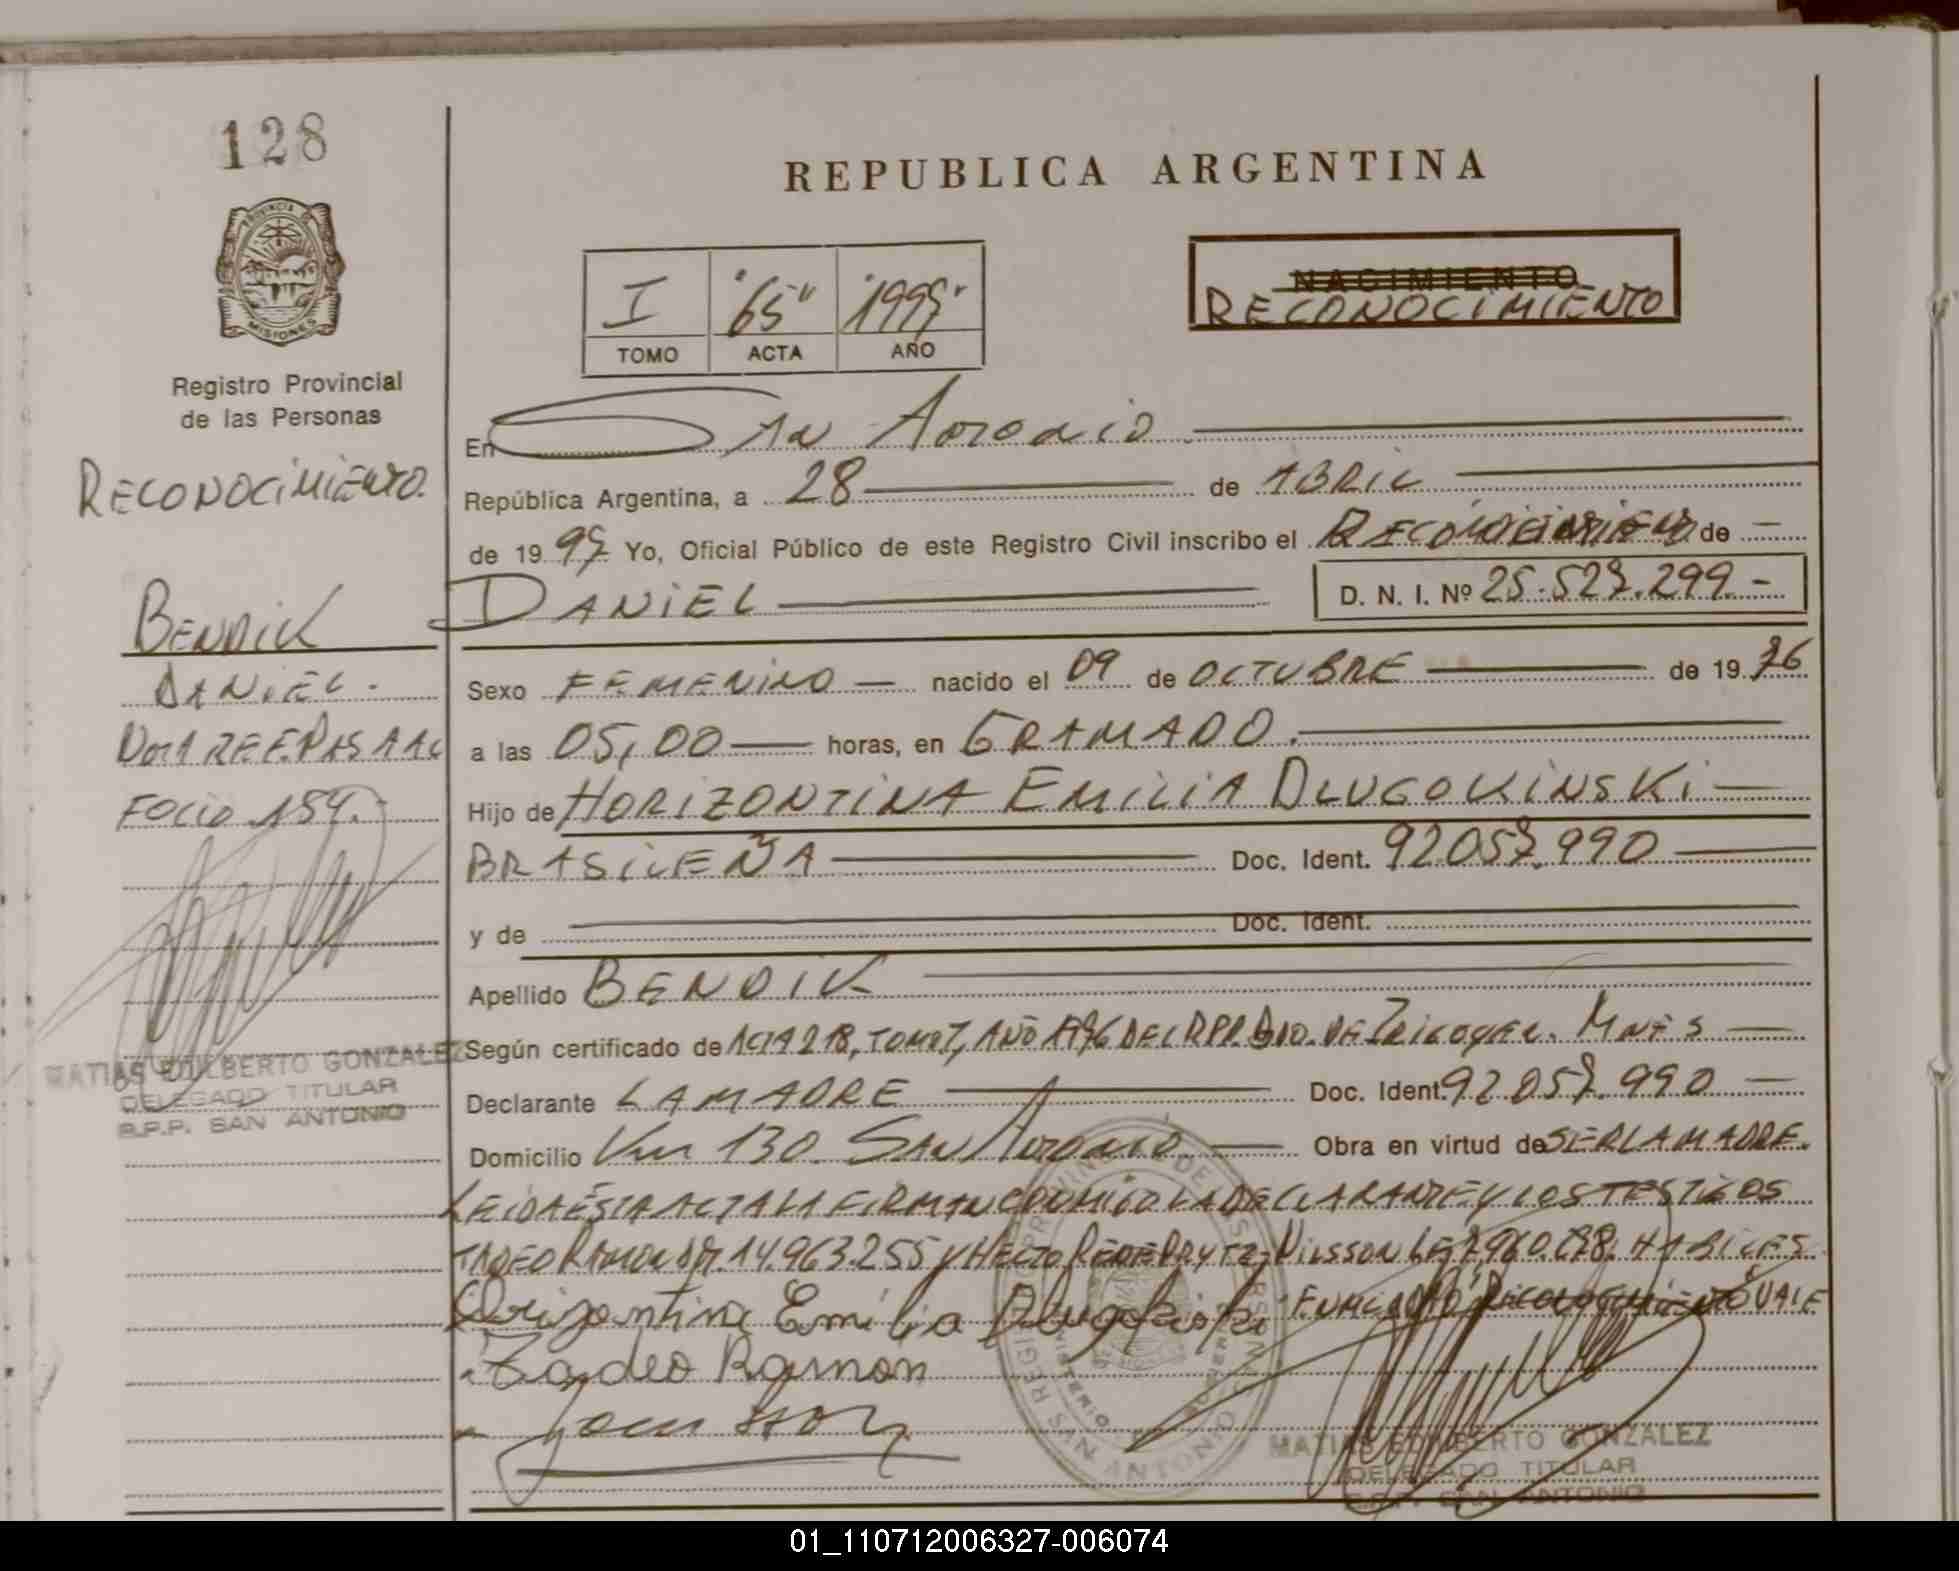 128
REPUBLICA ARGENTINA
PROVINCIA DE
MISIONES
NACIMIENTO
RECONOCIMIENTO
I "65" "1997"
TOMO ACTA AÑO
Registro Provincial
de las Personas
RECONOCIMIENTO.
En San Antonio
República Argentina, a 28 de ABRIL
de 19 97 Yo, Oficial Público de este Registro Civil inscribo el RECONOCIMIENTO de
DANIEL D. N. I. Nº 25.527.299.-
BENDIK
DANIEL.
FOLIO 159.-
Sexo FEMENINO nacido el 09 de OCTUBRE de 19 76
a las 05,00 horas, en GRAMADO.
Hijo de HORIZONTINA EMILIA DLUGOKINSKI
BRASILEÑA Doc. Ident. 92.057.990
y de Doc. Ident.
Apellido BENDIK
Según certificado de ACTA 218, TOMO I, AÑO 1976 DEL R.P.P. MNES
Declarante LA MADRE Doc. Ident. 92.057.990
Domicilio Km 130. San Antonio Obra en virtud de SER LA MADRE.
LEIDA ESTA ACTA LA FIRMAN CONMIGO LA DECLARANTE Y LOS TESTIGOS
TADEO RAMON 14.963.255 Y NILSSON HABILES
Orizontina Emilia
Tadeo Ramon
MATIAS EDILBERTO GONZALEZ
DELEGADO TITULAR
R.P.P. SAN ANTONIO
MATIAS EDILBERTO GONZALEZ
DELEGADO TITULAR
R.P.P. SAN ANTONIO
01_110712006327-006074